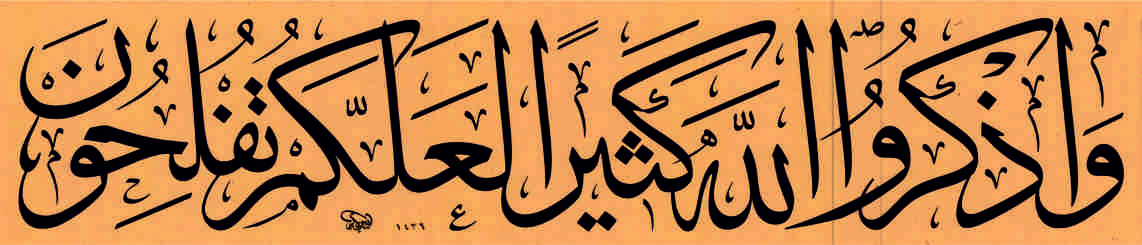 وَاذْكُرُوا اللَّهَ كَثِيرًا لَعَلَّكُمْ تُفْلِحُونَ
١٤٣٩